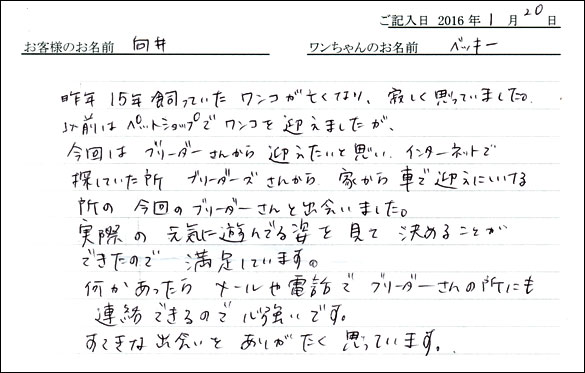 ご記入日 2016年 1月 20日
お客様のお名前 向井 ワンちゃんのお名前 ベッキー
昨年 15年飼っていた ワンコが亡くなり、寂しく思っていました。
以前は ペットショップで ワンコを 迎えましたが、
今回は ブリーダーさんから 迎えたいと思い、インターネットで
探していた所 ブリーダーズさんから 家から車で迎えにいける
所の 今回のブリーダーさんと出会いました。
実際の 元気に遊んでる姿を見て 決めることが
できたので 満足しています。
何かあったら メールや電話で ブリーダーさんの所にも
連絡できるので心強いです。
すてきな出会いを ありがたく 思っています。